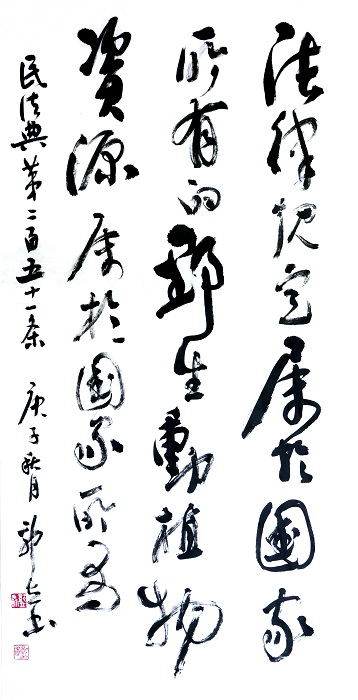 法律規定属於國家
所有的野生動植物
資源属於國家所有
民法典第二百五十一条 庚子秋月 郭